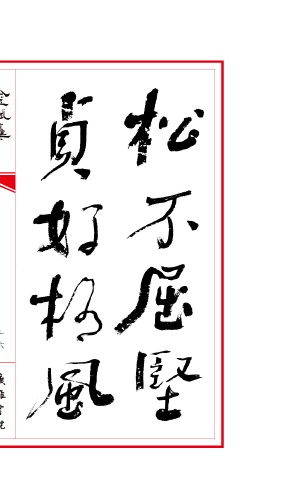 松不屈堅
貞好格風